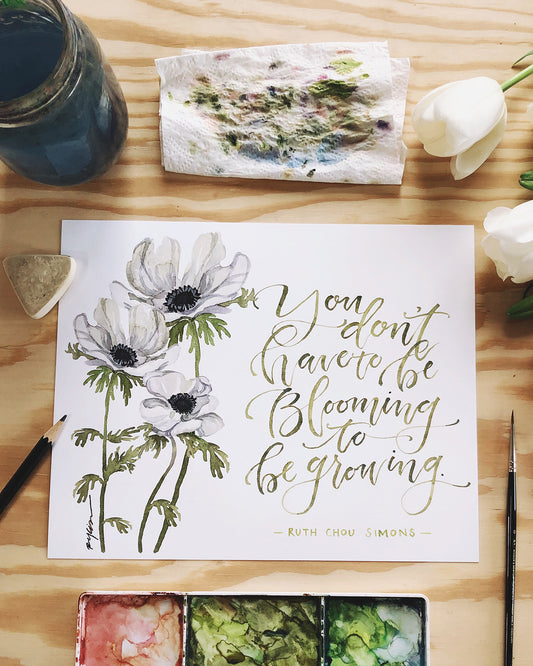 You
don't
have to be
Blooming
to
be growing.
— RUTH CHOU SIMONS —